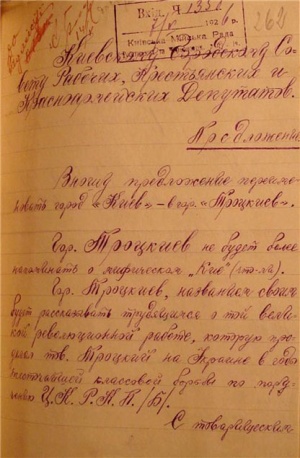 Вхід. Я 1351
192 р.
Київська Міська Рада
262
Киевскому Городскому Со-
вету Рабочих, Крестьянских и
Красноармейских Депутатов.
Предложение
Вношу предложение переиме-
новать город «Киев» – в гор. «Троцкиев».
Гор. Троцкиев не будет более
напоминать о мифическом „Кие“
Гор. Троцкиев, названием своим
будет рассказывать трудящимся о той вели-
кой революционной работе, которую про-
делал тов. Троцкий на Украине в годы
классовой борьбы по пору-
чению Ц.К. Р.К.П. /Б/.
С товарищеским